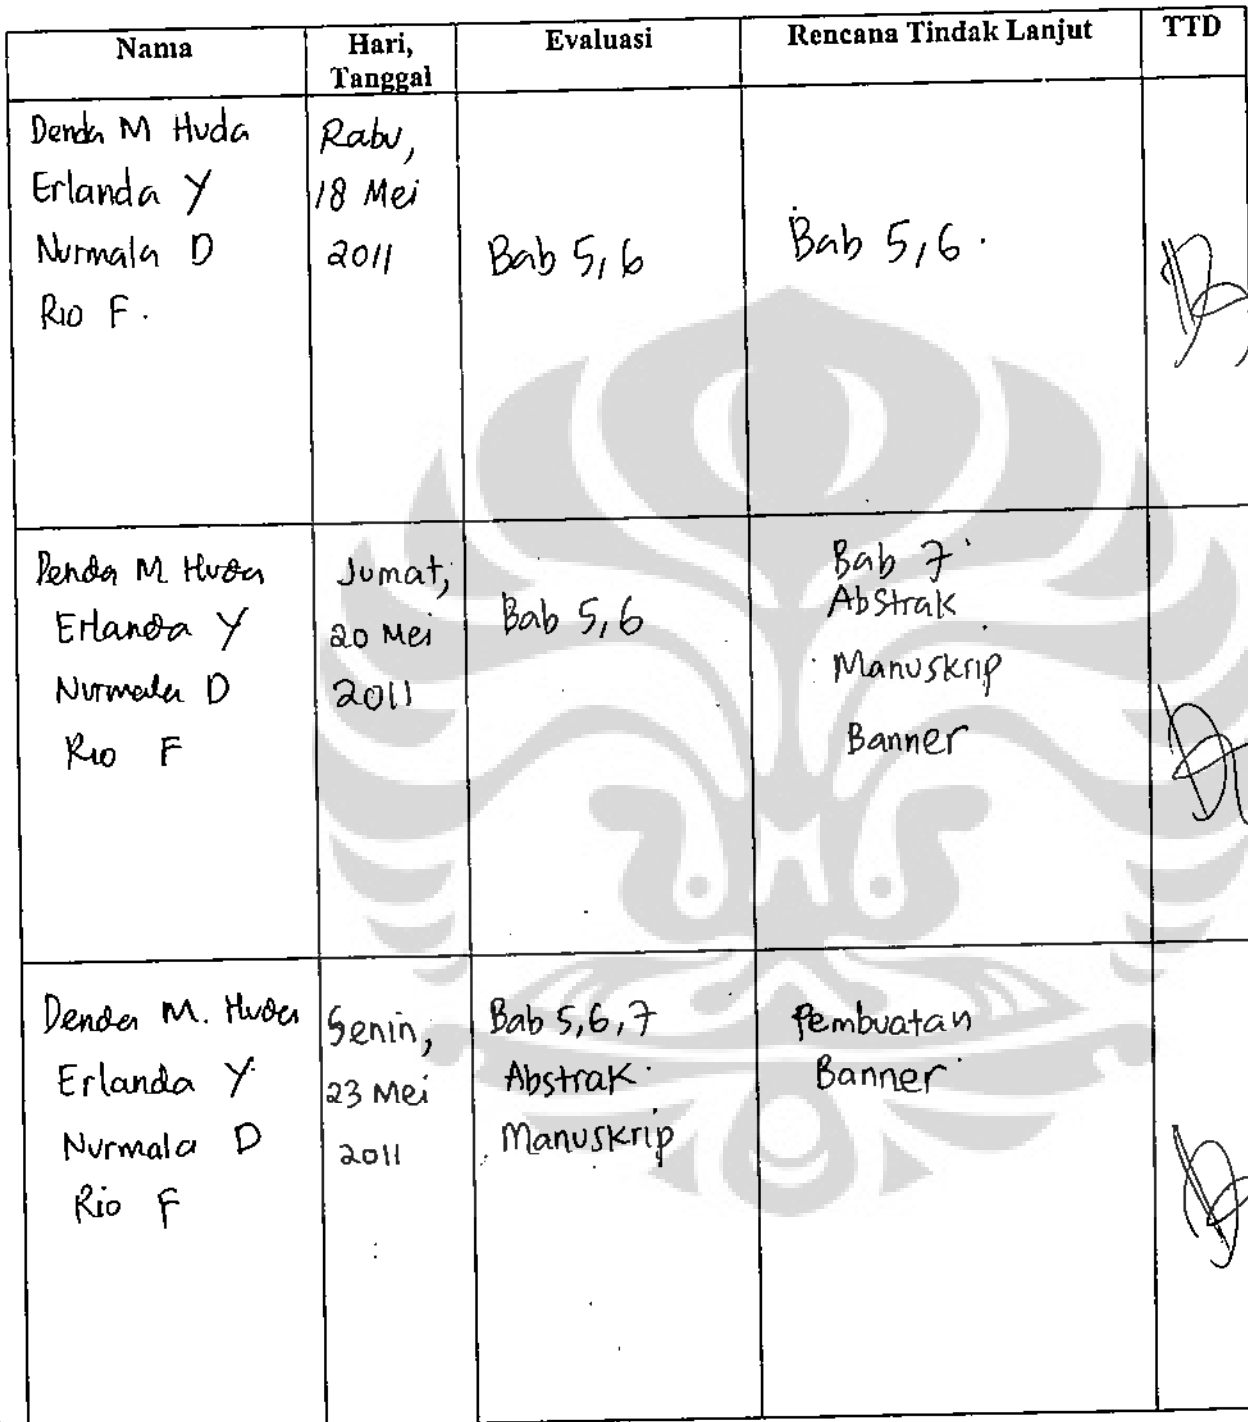 Nama
Hari,
Tanggal
Evaluasi
Rencana Tindak Lanjut
TTD
Denda M Huda
Erlanda Y
Nurmala D
Rio F.
Rabu,
18 Mei
2011
Bab 5,6
Bab 5,6.
Denda M. Huda
Erlanda Y
Nurmala D
Rio F
Jumat,
20 Mei
2011
Bab 5,6
Bab 7
Abstrak
Manuskrip
Banner
Denda M. Huda
Erlanda Y
Nurmala D
Rio F
Senin,
23 Mei
2011
Bab 5,6,7
Abstrak
Manuskrip
Pembuatan
Banner